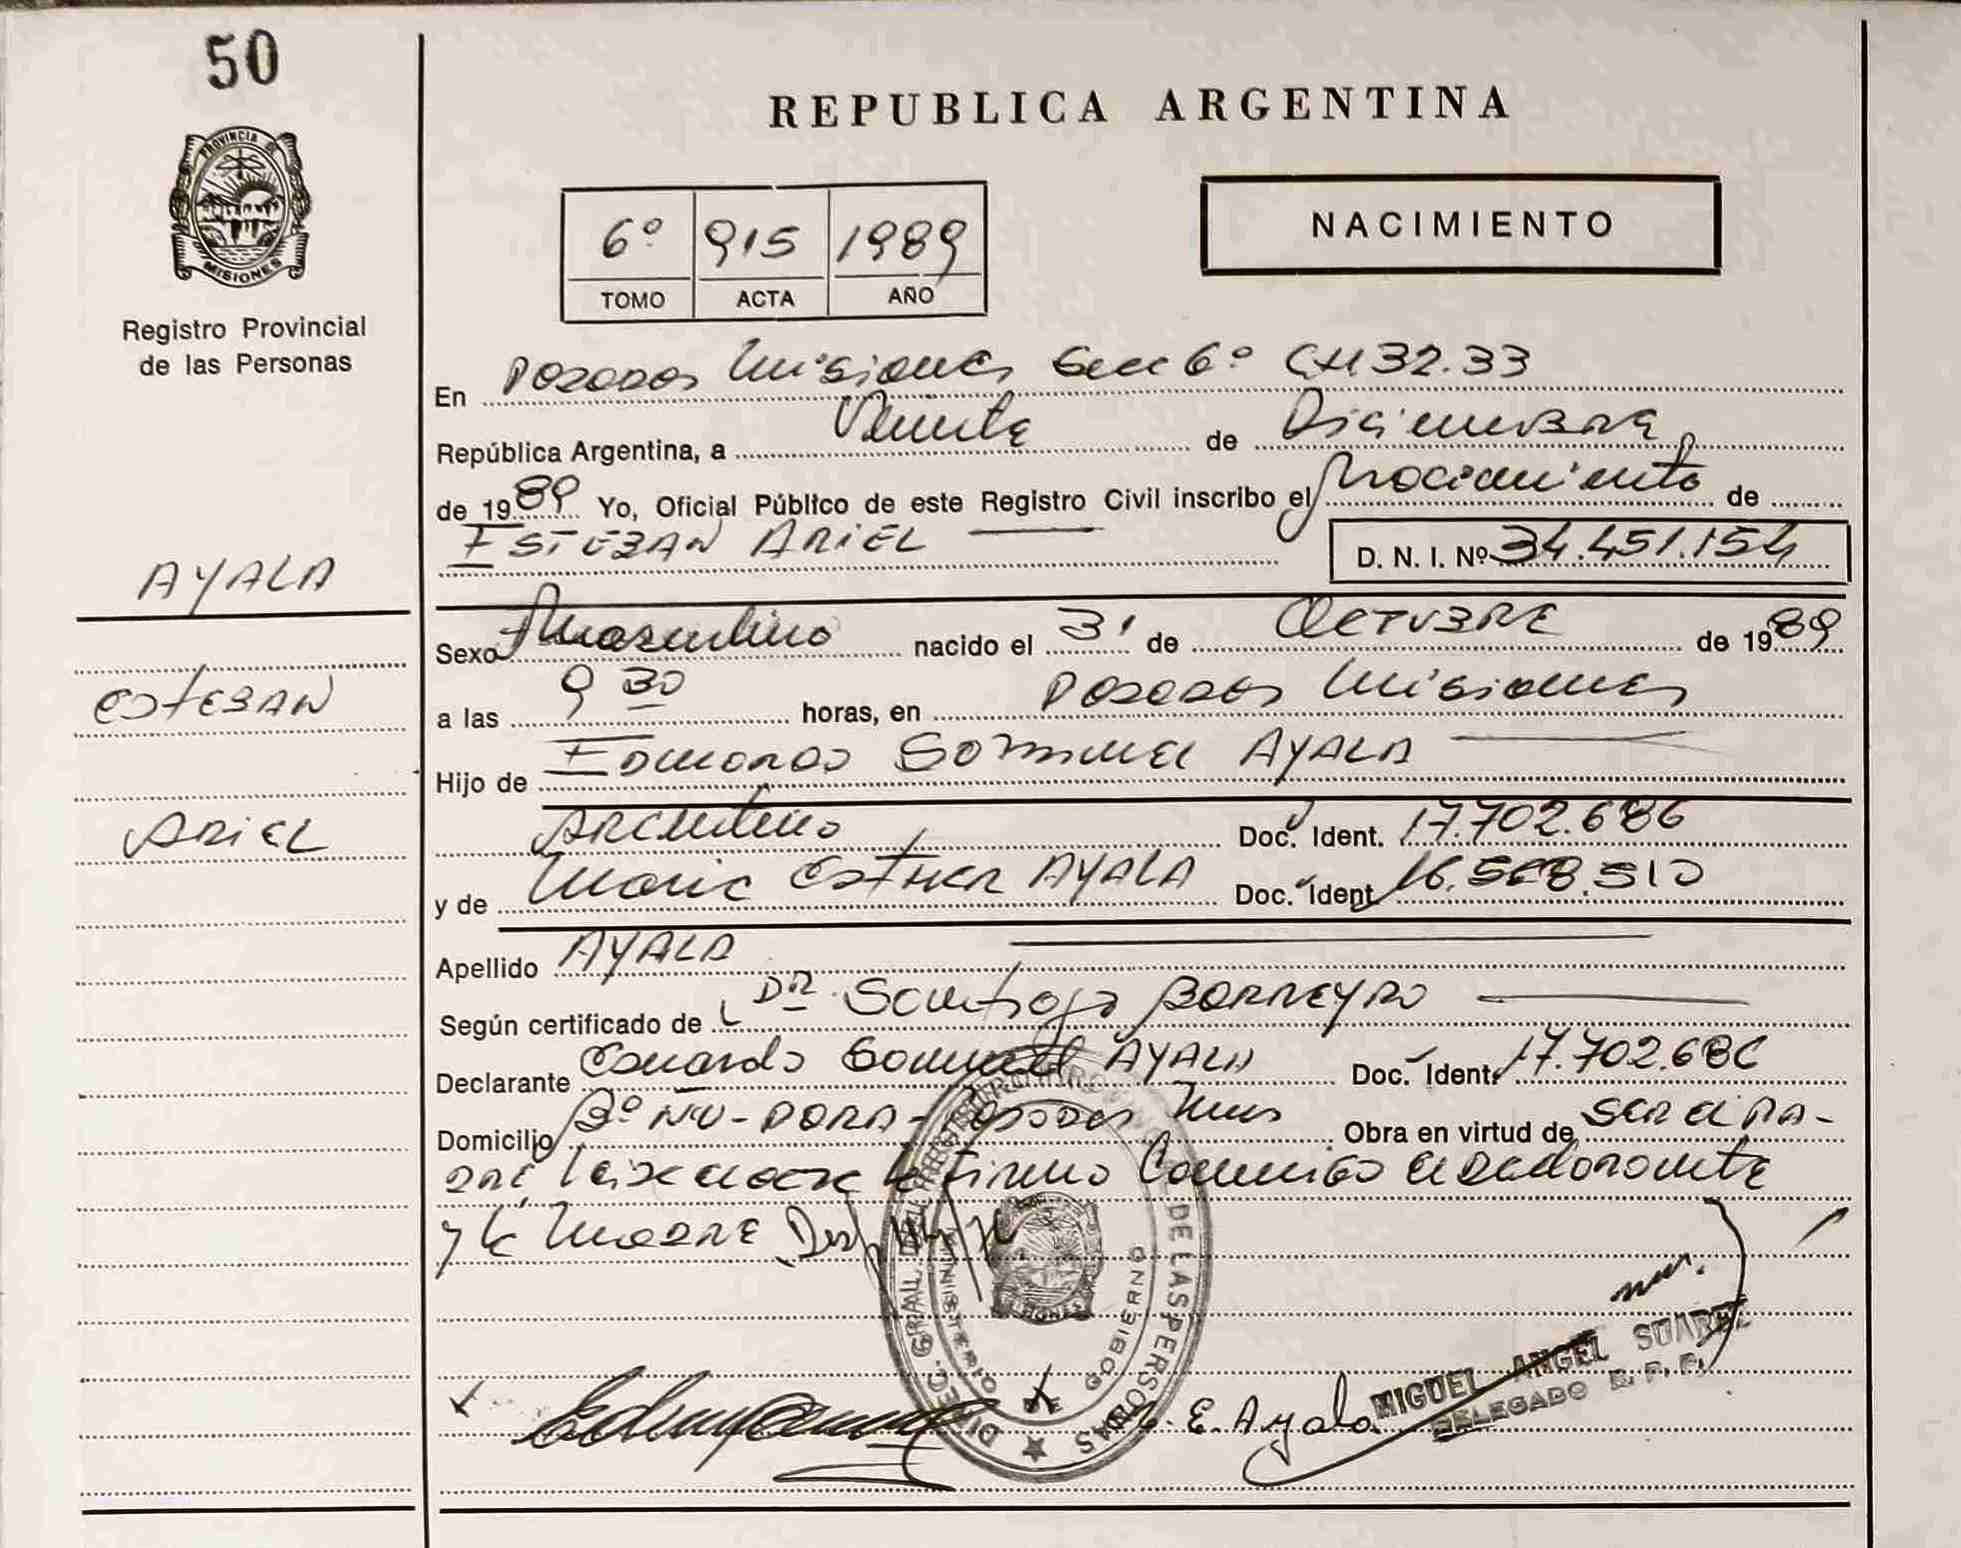 50
REPUBLICA ARGENTINA
PROVINCIA DE
MISIONES
Registro Provincial
de las Personas
6º 915 1989
TOMO ACTA AÑO
NACIMIENTO
En Posadas Misiones Secc 6º CH 32.33
República Argentina, a Veinte de Diciembre
de 1989 Yo, Oficial Público de este Registro Civil inscribo el Nacimiento de
ESTEBAN ARIEL
D. N. I. Nº 34.451.154
AYALA
ESTEBAN
ARIEL
Sexo Masculino nacido el 31 de OCTUBRE de 1989
a las 9 30 horas, en Posadas Misiones
Hijo de Samuel AYALA
Argentino Doc. Ident. 17.702.686
y de Maria Esther AYALA Doc. Ident. 16.568.510
Apellido AYALA
Según certificado de Dr. Santiago BARREYRO
Declarante Samuel AYALA Doc. Ident. 17.702.686
Domicilio Bº ÑU-PORA - Posadas Mnes Obra en virtud de
Firmo Conmigo el Declarante
y la MADRE
DIREC. GRAL. DEL REGISTRO PROVINCIAL DE LAS PERSONAS
MINISTERIO DE GOBIERNO
E. Ayala
MIGUEL ANGEL SUAREZ
DELEGADO R. P. P.